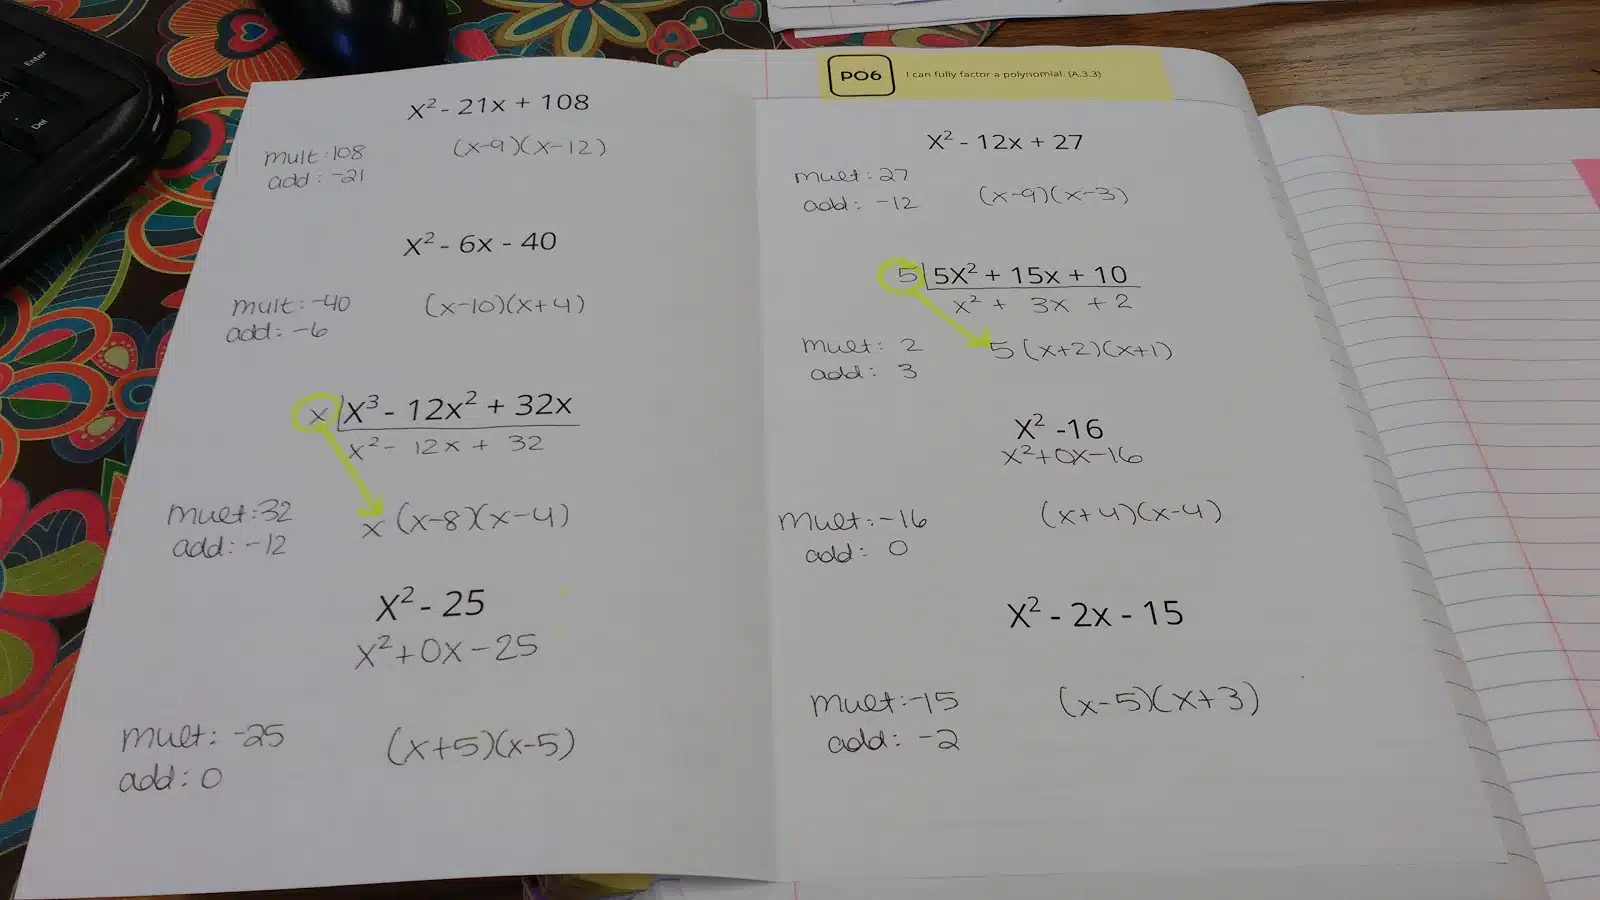 Enter
Del
x² - 21x + 108
mult: 108
add: -21
(x-9)(x-12)
x² - 6x - 40
mult: -40
add: -6
(x-10)(x+4)
x x³ - 12x² + 32x
x² - 12x + 32
mult: 32
add: -12
x (x-8)(x-4)
x² - 25
x²+0x-25
mult: -25
add: 0
(x+5)(x-5)
PO6 I can fully factor a polynomial. (A.3.3)
x² - 12x + 27
mult: 27
add: -12
(x-9)(x-3)
5 5x² + 15x + 10
x² + 3x + 2
mult: 2
add: 3
5 (x+2)(x+1)
x² -16
x²+0x-16
mult: -16
add: 0
(x+4)(x-4)
x² - 2x - 15
mult: -15
add: -2
(x-5)(x+3)